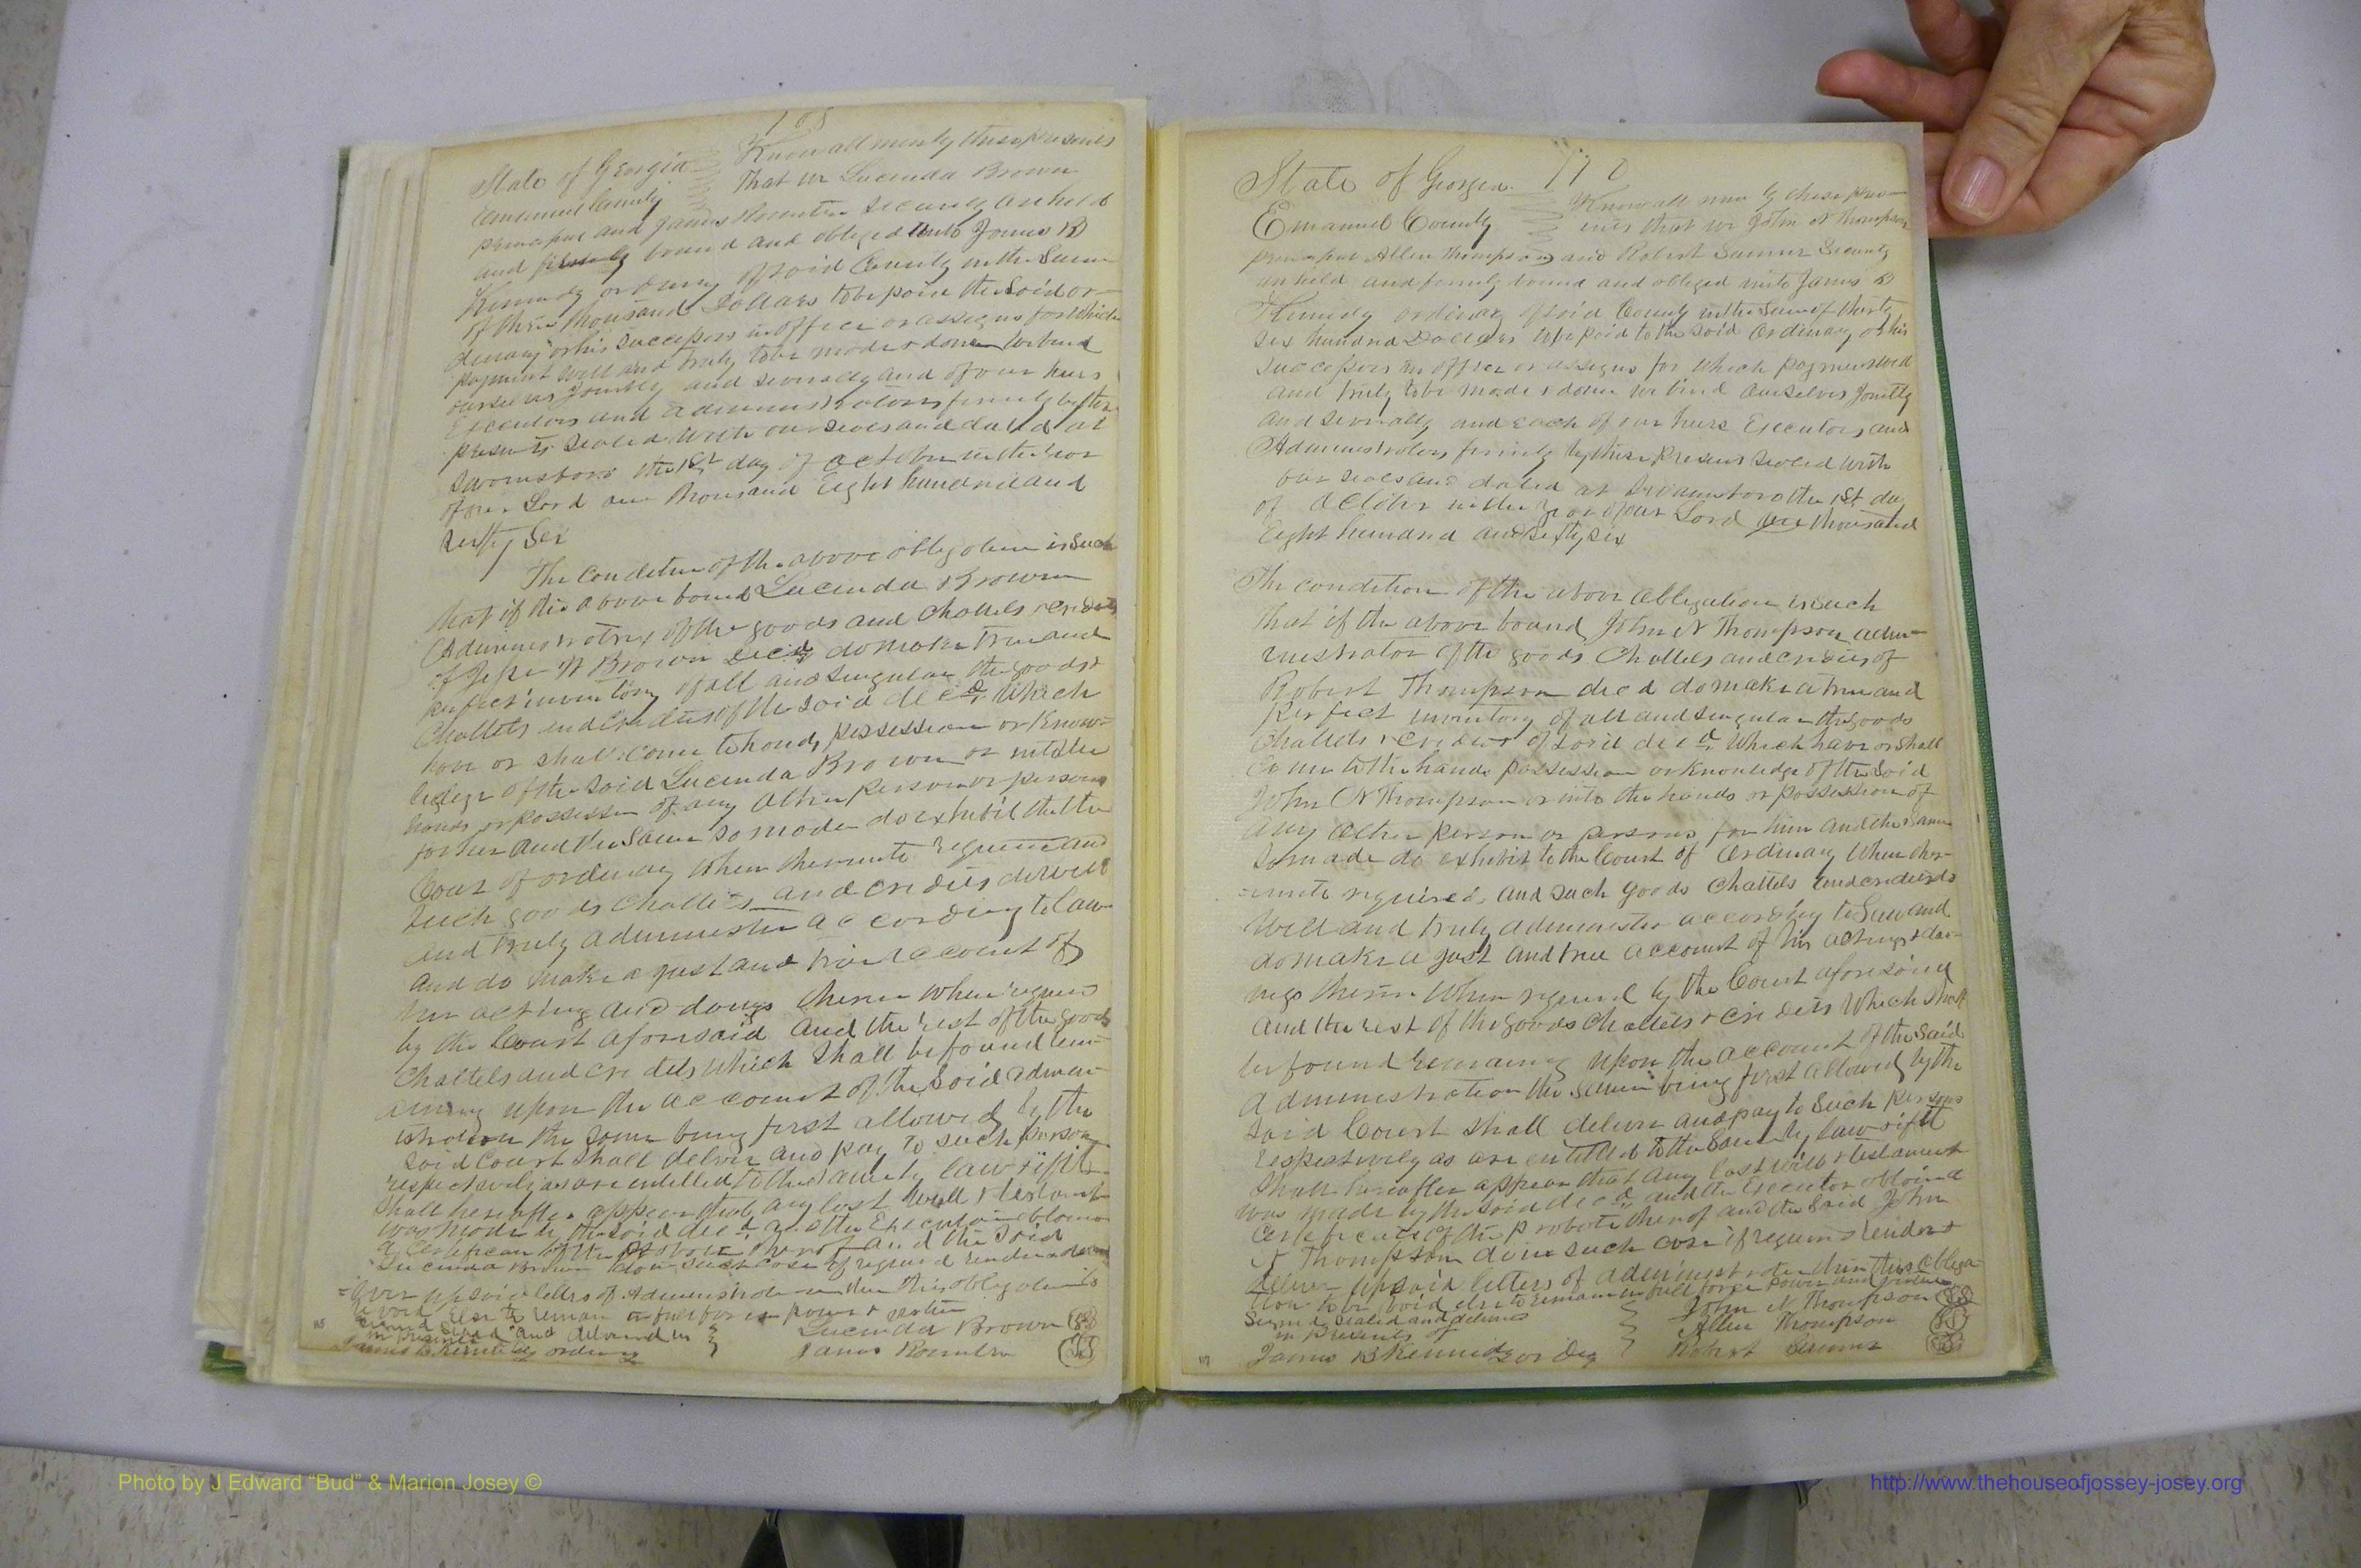 108
State of Georgia
Know all men by these presents
Emanuel County
That we Lucinda Brown
principal and James Rountree Security are held
and firmly bound and obliged unto James B
Kennedy ordinary of said County in the Sum
of three thousand Dollars to be paid the Said or-
dinary or his Successors in office or assigns for which
payment well and truly to be made & done We bind
ourselves Jointly and severally and of our heirs
Executors and administrators firmly by these
presents Sealed With our seals and dated at
Swainsboro the 1st day of October in the year
of our Lord one thousand Eight hundred and
Sixty Six
The Condition of the above obligation is Such
that if the above bound Lucinda Brown
Administratrix of the goods and Chattels credits
of Jesse Brown Decd do make true and
perfect inventory of all and Singular the goods &
Chattels and Credits of the said decd Which
have or shall come to hands possession or Know-
ledge of the Said Lucinda Brown or into the
hands or possession of any Other person or persons
for her and the Same So made do exhibit the the
Court of ordinary When thereunto required and
Such goods Chattels and credits do well
and truly administer according to law
and do make a just and true account of
her acting and doings therein When required
by the Court aforesaid and the rest of the goods
Chattels and credits Which Shall be found rem-
aining upon the account of the Said admin-
istration the Same being first allowed by the
Said Court Shall deliver and pay to such persons
respectively as are entitled to the Same by law & if it
Shall hereafter appear that any last Will & testament
was made by the said decd and the Executor obtain
a Certificate of the probate thereof and the Said
Lucinda Brown do in such case if required render & del
iver up said letters of Administration then this obligation to
be void Else to remain in full force power & virtue
Signed Sealed and delivered in
in presents
Lucinda Brown LS
James B Kennedy ordinary
James Rountree LS
115
110
State of Georgia
Know all men by these pres-
Emanuel County
ents that we John N Thompson
principal Allen Thompson and Robert Sumner Security
are held and firmly bound and obliged unto James B
Kennedy ordinary of said County in the Sum of thirty
Six hundred Dollars to be paid to the said Ordinary or his
Successors in office or assigns for Which payment well
and truly to be made & done we bind ourselves Jointly
and Severally and each of our heirs Executors and
Administrators firmly by these Presents Sealed with
our seals and dated at Swainsboro the 1st day
of October in the year of our Lord one thousand
Eight hundred and Sixty six
The condition of the above Obligation is Such
That if the above bound John N Thompson admi-
nistrator of the goods Chattels and credits of
Robert Thompson decd do make a true and
Perfect inventory of all and Singular the goods
Chattels & credits of said decd Which have or shall
Come to the hands possession or Knowledge of the Said
John N Thompson or into the hands or possession of
any other person or persons for him and the Same
So made do exhibit to the Court of Ordinary When ther-
eunto required, and such goods Chattels and credits do
Well and truly administer according to Law and
do make a just and true account of his actings & do-
ings therein When required by the Court aforesaid
and the rest of the goods Chattels & credits Which Shall
be found remaining upon the account of the said
administration the Same being first allowed by the
said Court Shall deliver and pay to Such persons
respectively as are entitled to the Same by law & if it
Shall hereafter appear that any last will & testament
was made by the said decd and the Executor obtaind
Certificate of the probate thereof and the Said John
N Thompson do in such case if required render &
deliver up said letters of administration then this obliga
tion to be void else to remain in full force power and virtue
Signed Sealed and delivered
in presents of
John N Thompson LS
Allen Thompson LS
James B Kennedy or dny
Robert Sumner LS
117
Photo by J Edward “Bud” & Marion Josey ©
http://www.thehouseofjossey-josey.org